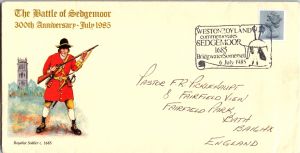 The Battle of Sedgemoor
300th Anniversary - July 1985
WESTONZOYLAND
commemorates
SEDGEMOOR
1685
Bridgwater Somerset
6 July 1985
PASTOR F R
8 FAIRFIELD VIEW
FAIRFIELD PARK,
BATH
ENGLAND
Royalist Soldier c. 1685